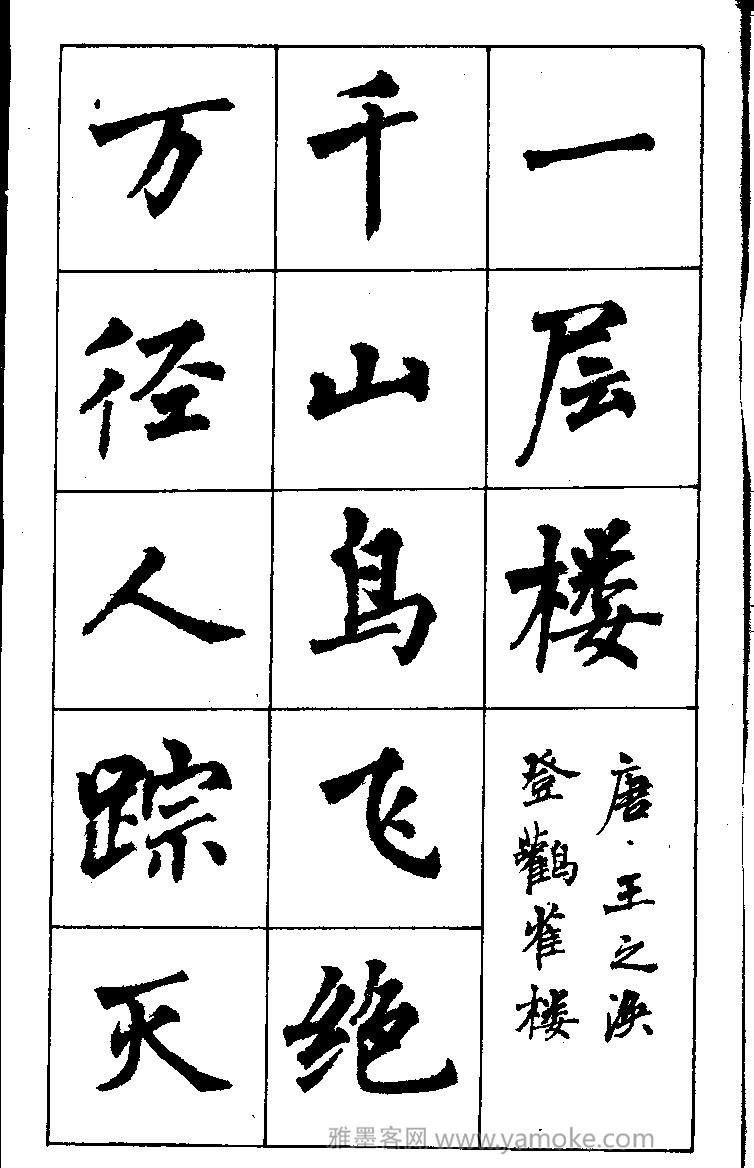 一层楼
唐·王之涣
登鹳雀楼
千山鸟飞绝
万径人踪灭
雅墨客网 www.yamoke.com